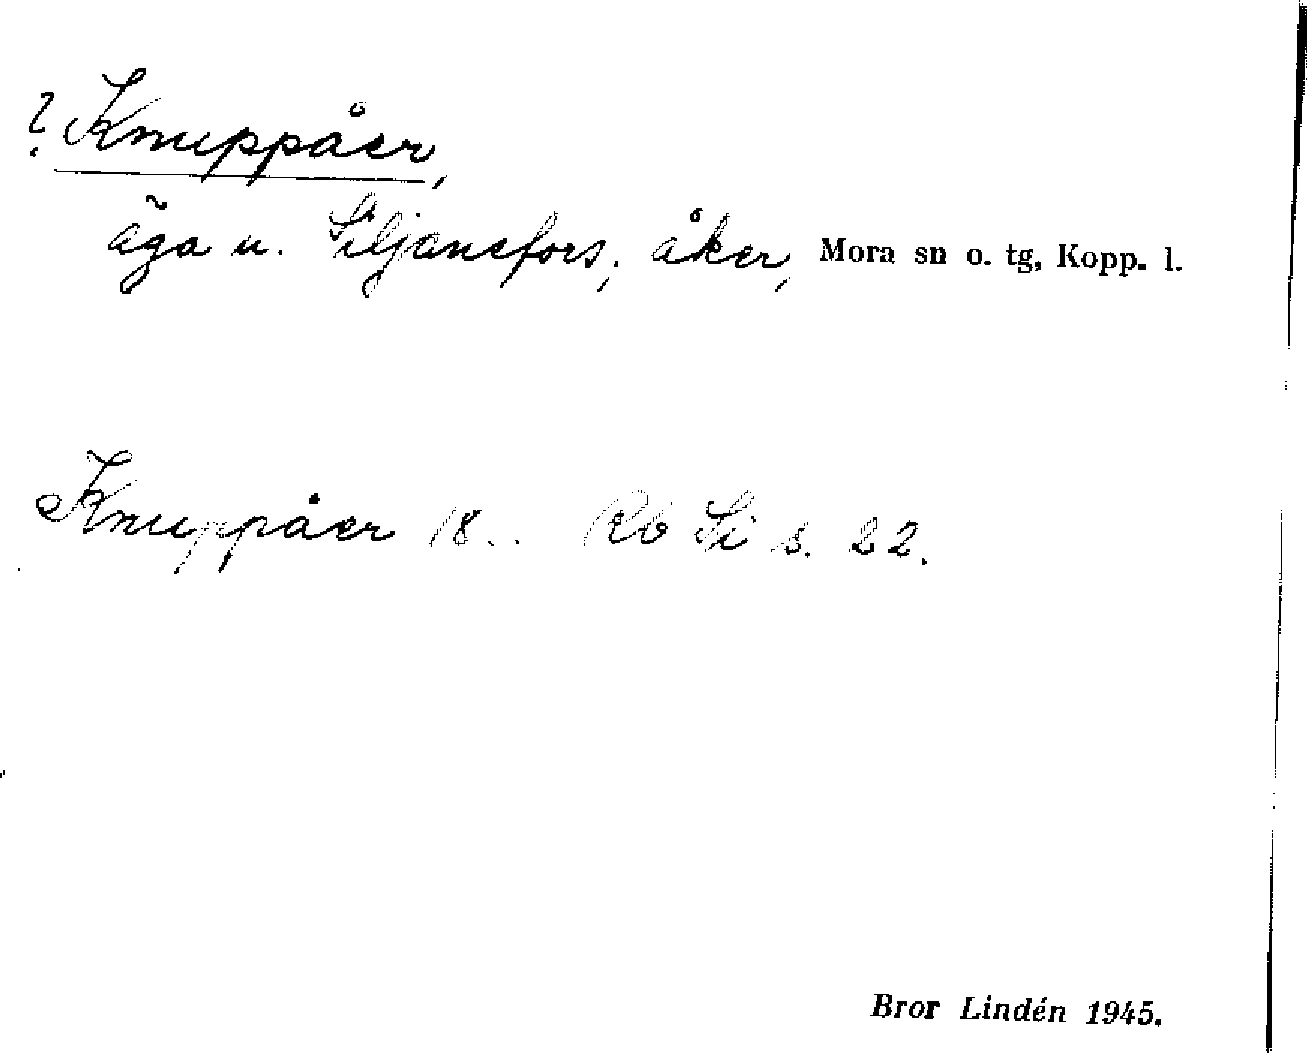 ? Knuppåer,
äga u. Siljansfors, åker, Mora sn o. tg, Kopp. l.
Knuppåer 18.. Rb Si s. 22.
Bror Lindén 1945.